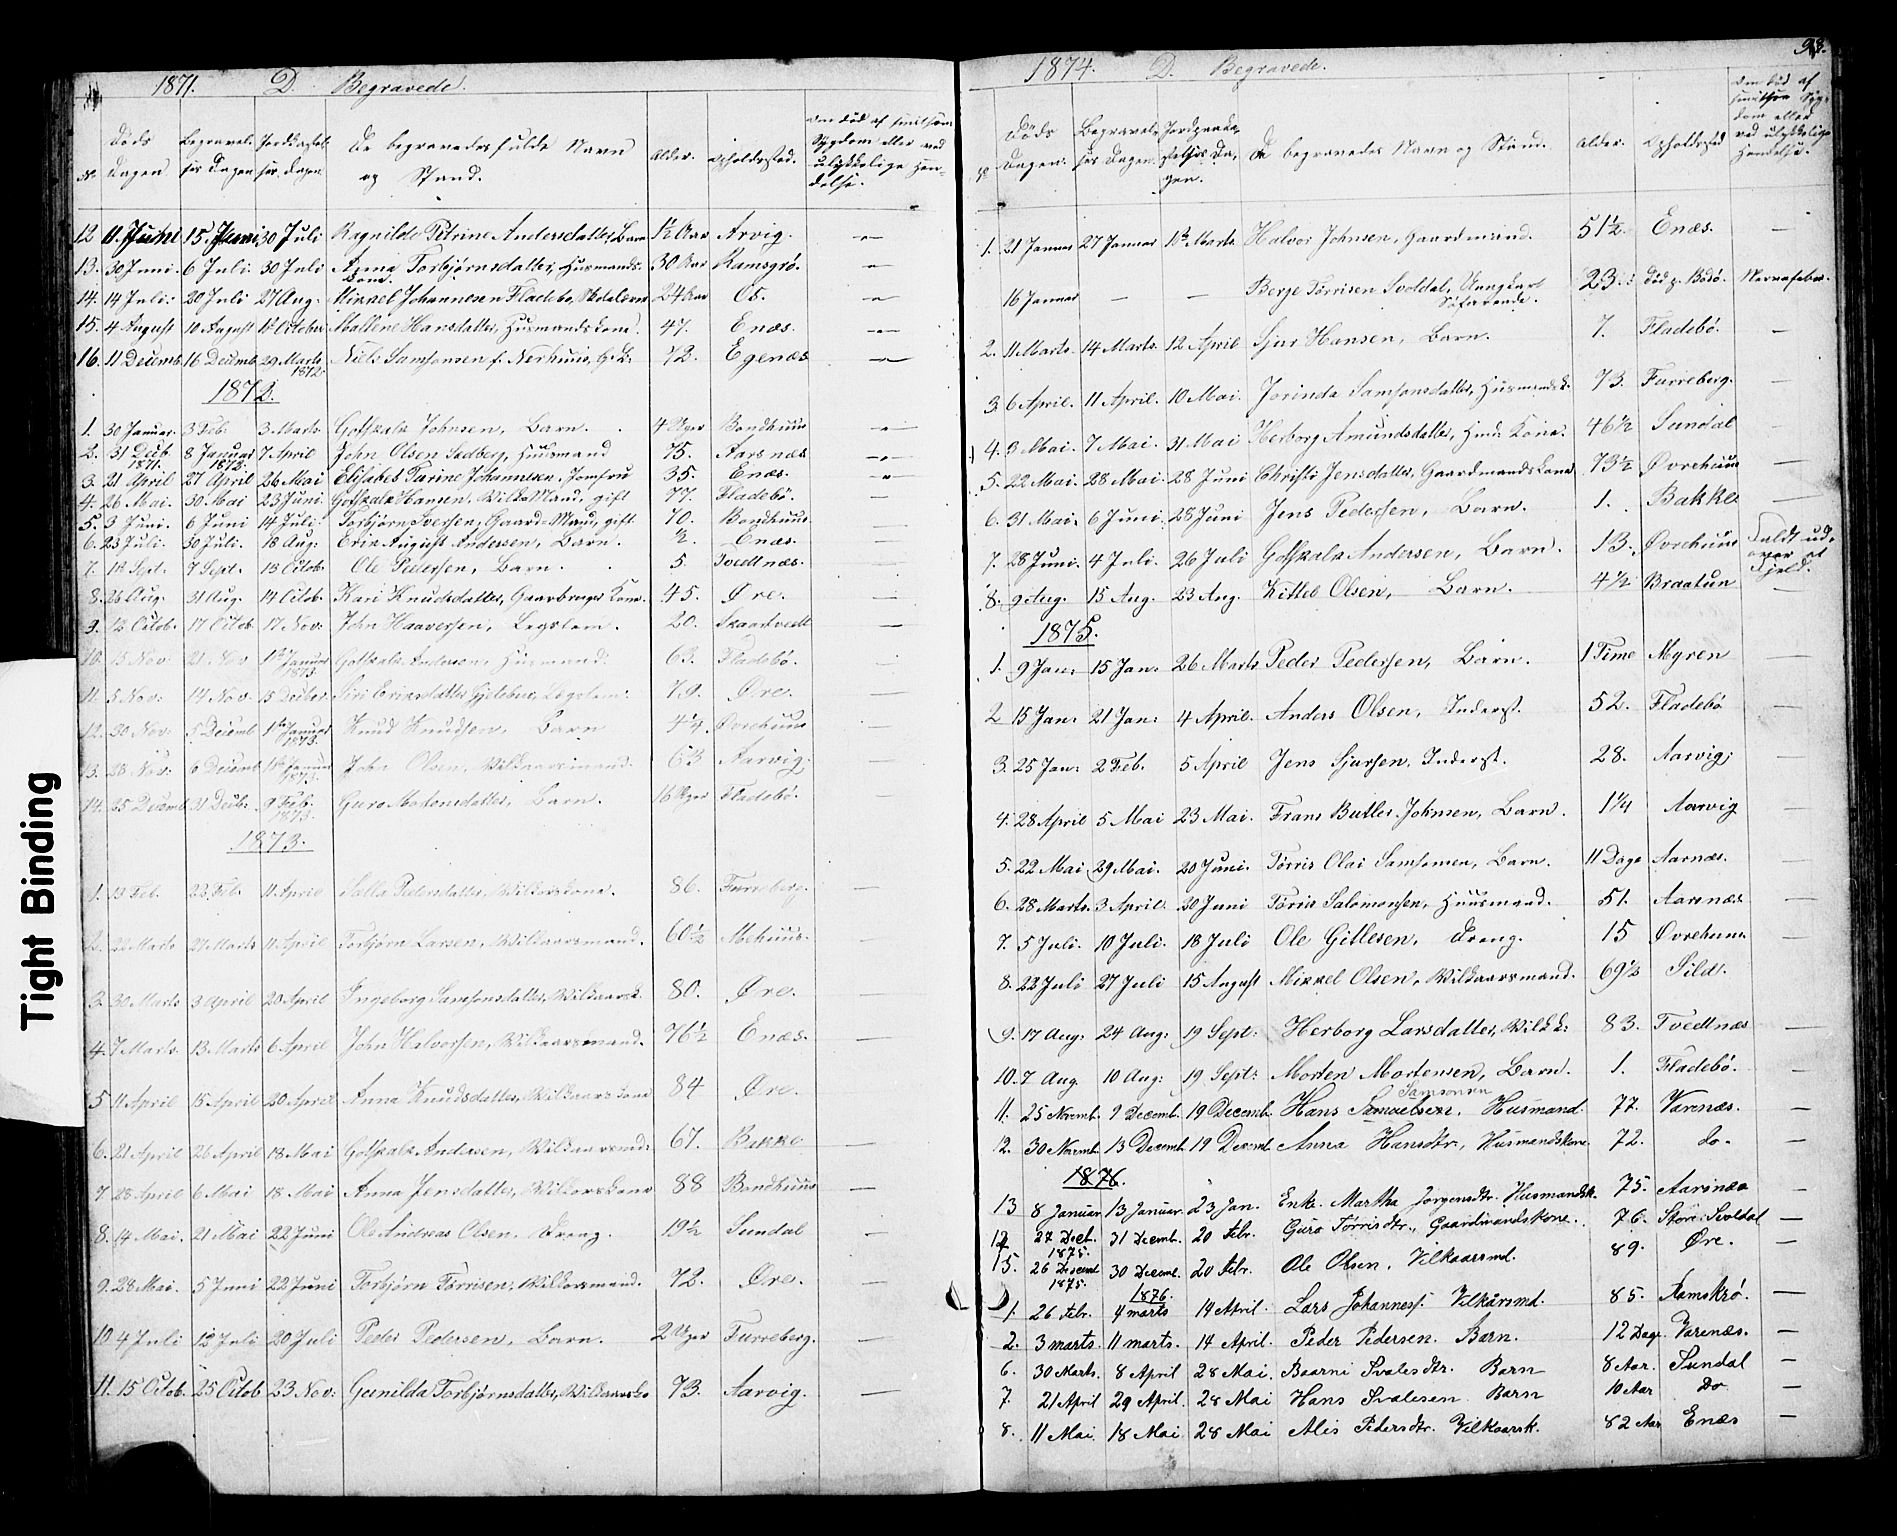 Tight Binding
1871. D. Begravede.
No Døds Dagen Begravel- ses Dagen De begravedes fulde Navn og Stand. Alder. Opholdssted. Om død af smitsom Sygdom eller ved ulykkelige Hen- delse.
12 11. Juni 15. Juni 30 Juli Ragnilde Petrine Andersdatter, Barn 1½ Aar Arvig. —
13. 30 Juni. 6 Juli. 30 Juli Anna Torbjørnsdatter, Husmands- Kone. 30 Aar Ramsgrø. —
14. 14 Juli. 20 Juli 27 Aug. Mikkel Johannesen Fladebø, 24 Aar Os. —
15. 4 August 10 August 1st October Maltene Hansdatter, Husmandskone. 47. Enæs. —
16. 11 Decemb. 16 Decemb. 29 Marts 1872. Niels Samsonsen f. Nerhuus, 72. Egenæs —
1872.
1. 30 Januar. 3 Feb. 3. Marts Gotskalk Johnsen, Barn. 4 Uger Bondhuus —
2. 31 Decb. 1871. 8 Januar 1872. 7 April John Olsen Sedberg, Huusmand 75. Aarsnæs —
3. 21 April 27 April 26 Mai Elisabet Turine Johannesen, Jomfru 35. Enæs. —
4. 26 Mai. 30 Mai 23 Juni. Gotskalk Hansen, Mand, gift 77. Fladebø. —
5. 3 Juni. 6 Juni 14 Juli. Torbjørn Iversen, Gaard=Mand, gift 70. Bondhuus —
6. 23 Juli. 30 Juli. 18 Aug: Erik August Andersen, Barn. ½. Enæs. —
7. 1st Sept. 7 Sept. 13 Octob. Ole Pedersen, Barn. 5. Tvedtnæs. —
8. 26 Aug. 31 Aug. 14 Octob. Kari Knudsdatter, Gaardbruger Kone. 45. Øre. —
9. 12 Octob. 17 Octob 17 Nov. John Haaversen, Legslem. 20. Skaartvedt —
10. 15 Nov. 21 Nov 1st Januar 1873 Gotskalk Andersen, Husmand. 63. Fladebø. —
11. 5 Nov. 14 Nov 15 Decbr. Siri Eriksdatter Legslem. 79. Øre. —
12. 30 Nov. 5 Decemb 1ste Januar 1873. Knud Knudsen, Barn 4¼. Øvrehuus —
13. 28 Nov: 6 Decemb 1ste Januar 1873. John Olsen, Vilkaarsmand. 63 Aarvig. —
14. 25 Decemb 31 Decb. 9 Feb. 1873. Guro Mortensdatter, Barn. 16 Uger Fladebø. —
1873.
1. 13 Feb. 23 Feb. 11 April Salla Pedersdatter, Vilkorskone. 86. Furreberg. —
2. 22 Marts 27 Marts 11 April Torbjørn Larsen, Vilkaarsmand. 60½ Mehuus. —
3. 30 Marts 3 April 20 April Ingeborg Samsonsdatter, Vilkaarsk. 80. Øre. —
4. 7 Marts. 13 Marts 6 April John Halvorsen, Vilkaarsmand. 76½ Enæs. —
5 11 April 15 April 20 April Anna Knudsdatter, Vilkaarskone 84 Øre. —
6. 21 April 26 April 18 Mai Gotskalk Andersen, Vilkaarsmd: 67. Bakke —
7. 28 April 6 Mai 18 Mai Anna Jensdatter, Vilkorskone 88 Bondhuus —
8. 14 Mai. 21 Mai 22 Juni Ole Andreas Olsen. Dreng. 19½ Sundal —
9. 28 Mai. 5 Juni 22 Juni Torbjørn Tørrisen, Vilkorsmand. 72. Øre. —
10 4 Juli 12 Juli 20 Juli Peder Pedersen, Barn. 2 Uger Furreberg. —
11. 15 Octob. 25 Octob 23. Nov. Gunilda Torbjørnsdatter, 73. Aarvig. —
93.
1874. D. Begravede.
Døds Dagen. Begravel- ses Dagen. De begravedes Navn og Stand. Alder. Opholdssted Om død af smitsom Syg- dom eller ved ulykkelige Hendelse.
1. 21 Januar 27 Januar Marts Halvor Johnsen, Gaardmand. 51½. Enæs. —
16 Januar — — Berje Tørrisen Svoldal, Ungkarl Søfarende. 23. død p. Bodø. Nervefeber.
2. 11 Marts. 14 Marts. 12 April Sjur Hansen, Barn. 7. Fladebø. —
3. 6 April. 11 April. 10 Mai. Jorinda Samsonsdatter, Husmandsk. 73. Furreberg. —
4. 3 Mai. 7 Mai. 31 Mai Herborg Amundsdatter, Kone. 46½ Sundal —
5. 22 Mai. 28 Mai. 28 Juni Christi Jensdatter, Gaardmands Kone 73½ Øvrehuus —
6. 31 Mai. 6 Juni. 28 Juni Jens Pedersen, Barn. 1. Bakke —
7. 28 Juni. 4 Juli. 26 Juli Gotskalk Andersen, Barn. 13. Øvrehuus Faldt ud- over et Fjeld.
8. 9 Aug. 15 Aug. 23 Aug. Kittel Olsen, Barn. 4½ Braatun —
1875.
1. 9 Jan. 15 Jan. 26 Marts Peder Pedersen, Barn. 1 Time Myren —
2 15 Jan. 21 Jan. 4 April. Anders Olsen, Inderst. 52. Fladebø —
3. 25 Jan. 2 Feb. 5 April Jens Sjursen, Inderst. 28. Aarvig. —
4. 28 April 5 Mai 23 Mai. Frans Butler Johnsen, Barn. 1¼ Aarvig —
5. 22 Mai 29 Mai. 20 Juni. Tørris Olai Samsonsen, Barn. 11 Dage Aarnæs. —
6. 28 Marts. 3 April. 20 Juni Tørris Salomonsen, Huusmand. 51. Aarsnæs —
7. 5 Juli. 10 Juli. 18 Juli Ole Gitlesen, Dreng. 15 Øvrehuus. —
8. 22 Juli 27 Juli 15 August Mikkel Olsen, Vilkaarsmand. 69½ Sildt. —
9. 17 Aug. 24 Aug. 19 Sept. Herborg Larsdatter, Vilk. k. 83. Tvedtnæs —
10. 7 Aug. 10 Aug: 19 Sept: Morten Mortensen, Barn. 1. Fladebø. —
11. 25 Novemb. 9 Decemb. 19 Decemb. Hans Samuelsen. Samsonsen Husmand. 77. Varenæs. —
12. 30 Novemb. 13 Decemb. 19 Decemb. Anna Hansdtr., Husmandskone 72. do. —
1876.
13 8 Januar 13 Januar 23 Jan. Enke Martha Jørgensdtr. Husmandsk. 75. Aarsnæs —
14 27 Decb. 1875. 31 Decemb. 20 Febr. Guro Tørrisdtr., Gaardmandskone. 76. Store Svoldal —
15. 26 Decemb 1875. 30 Decemb. 20 Febr. Ole Olsen, Vilkaarsmd. 89. Øre. —
1876.
1. 26 Febr. 4 marts 14 April. Lars Johanness. Vilkårsmd. 85. Aamskrø. —
2. 3 marts. 11 marts. 14 April. Peder Pedersen. Barn. 12 Dage. Varenæs. —
6. 30 Marts. 8 April 28 Mai. Baarni Svalesdtr. Barn 8 Aar. Sundal —
7. 21 April 29 April. 28 Mai Hans Svalesen Barn 10 Aar Do —
8. 11 Mai. 18 Mai 28 Mai Alis Pedersdtr. Vilkaarsk. 82 Aar Enæs —